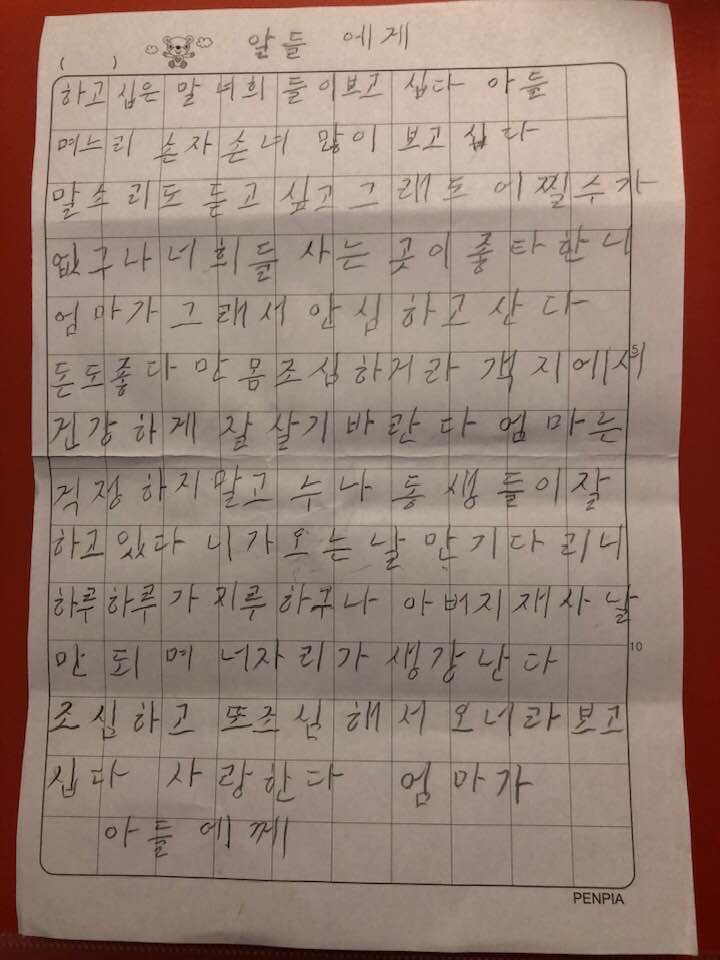 ( ) 알들 에게
하고 십은 말 너희 들이보고 십다 아들
며느리 손자손녀 많이 보고 십다
말소리도 듣고 싶고 그래도 어찔수가
없구나 너희들 사는 곳이 좋타한니
엄마가 그래서 안심하고 산다
돈도좋다 만 몸조심하거라 객지에서
건강하게 잘살기 바란다 엄마는
걱정하지말고 누나 동생들이잘
하고있다 니가오는날만기다리니
하루하루가지루하구나 아버지재사날
만되며 너자리가 생강난다
조심하고 또조심해서 오너라 보고
십다 사랑한다 엄마가
아들에께
5
10
PENPIA